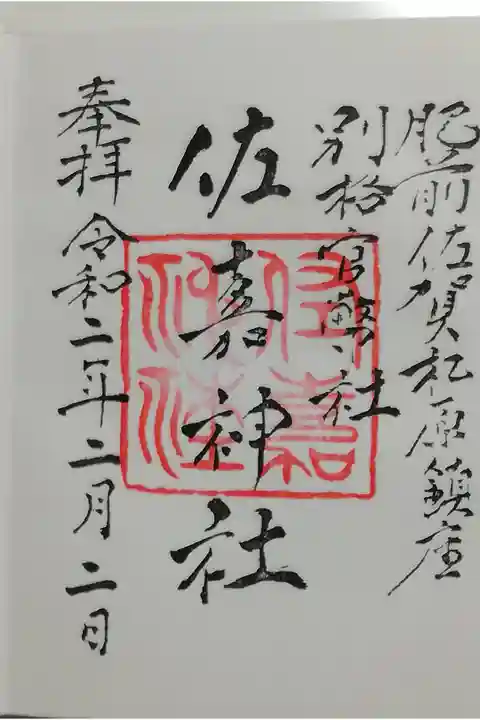 肥前佐賀松原鎮座
別格官幣社
佐嘉神社
奉拝 令和二年二月二日
佐嘉神社